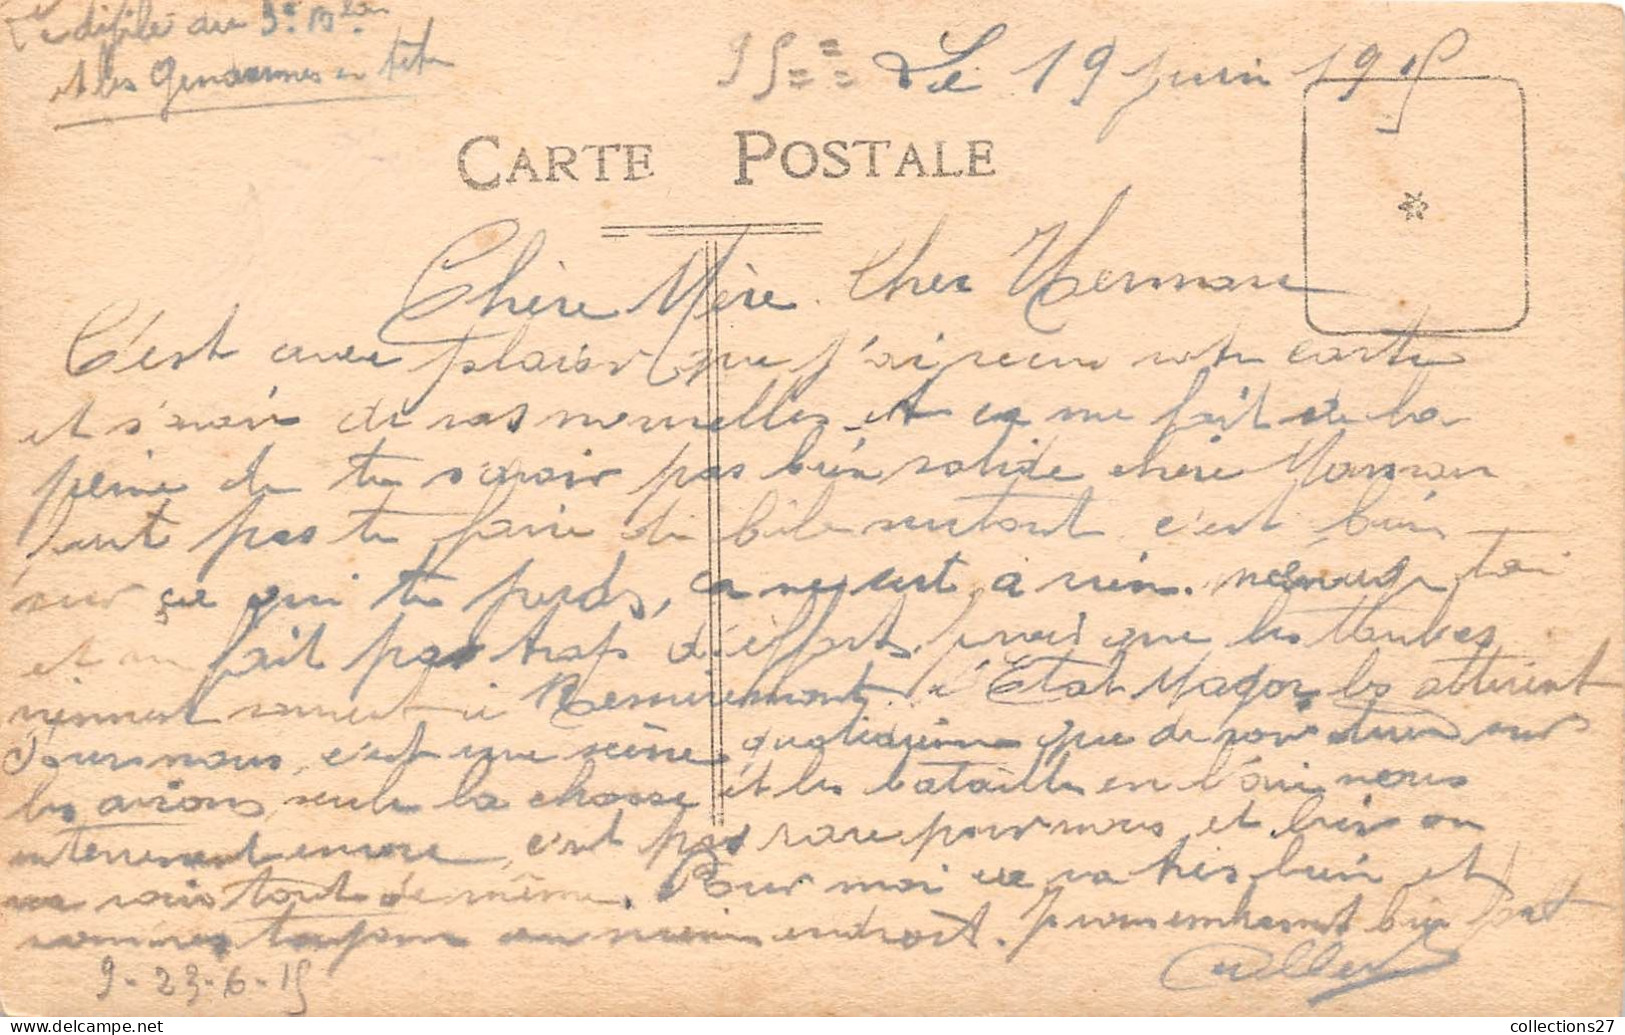 Le défilé du 3e Bon
et les Gendarmes en tête
95 Le 19 juin 1915
CARTE POSTALE
Chère Mère. Cher Hermann
C'est avec plaisir que j'ai recu votre carte
et s'avoir de vos nouvelles et ca me fait de la
peine de te s'avoir pas bien solide chère Maman
faut pas te faire de bile surtout c'est bien
sur ce qui te perds, ca ne sert à rien. ménage toi
et fait pas trop d'effort, que les Taubes
viennent souvent à Remiremont. l'Etat Major les attirent
Pour nous c'est une scène quotidienne que de voir tirer sur
les avions, seule la chasse et les batailles en l'air nous
interressent encore, c'est pas rare pour nous, et bien on
va vois tout de même. Pour moi ca va très bien et
sommes toujours au même endroit. Je vous embrasse bien fort
9-23-6-15
collections27